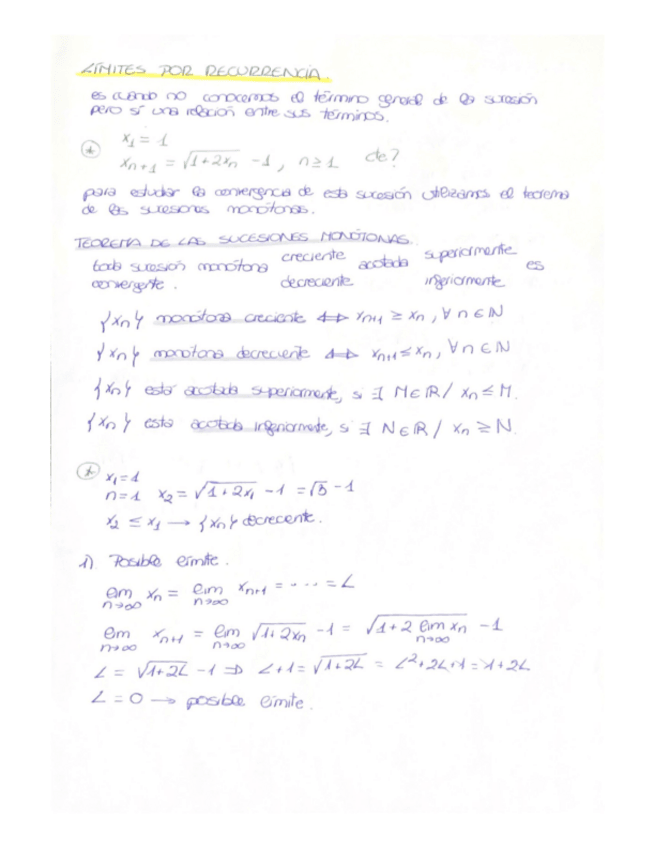 LÍMITES POR RECURRENCIA.
es cuando no conocemos el término general de la sucesión
pero sí una relación entre sus términos.
* x₁ = 1
xₙ₊₁ = √(1+2xₙ) - 1, n ≥ 1 de?
para estudiar la convergencia de esta sucesión utilizamos el teorema
de las sucesiones monótonas.
TEOREMA DE LAS SUCESIONES MONÓTONAS.
toda sucesión monótona creciente acotada superiormente es
convergente. decreciente inferiormente
{xₙ} monótona creciente ⇔ xₙ₊₁ ≥ xₙ, ∀ n ∈ ℕ
{xₙ} monótona decreciente ⇔ xₙ₊₁ ≤ xₙ, ∀ n ∈ ℕ
{xₙ} está acotada superiormente, si ∃ M ∈ ℝ / xₙ ≤ M.
{xₙ} esta acotada inferiormente, si ∃ N ∈ ℝ / xₙ ≥ N.
* x₁ = 1
n = 1 x₂ = √(1+2x₁) - 1 = √3 - 1
x₂ ≤ x₁ → {xₙ} decrecente.
1) Posible límite.
lim n→∞ xₙ = lim n→∞ xₙ₊₁ = .... = L
lim n→∞ xₙ₊₁ = lim n→∞ √(1+2xₙ) - 1 = √(1+2 lim n→∞ xₙ) - 1
L = √(1+2L) - 1 ⇒ L+1 = √(1+2L) = L²+2L+1 = 1+2L
L = 0 → posible límite.